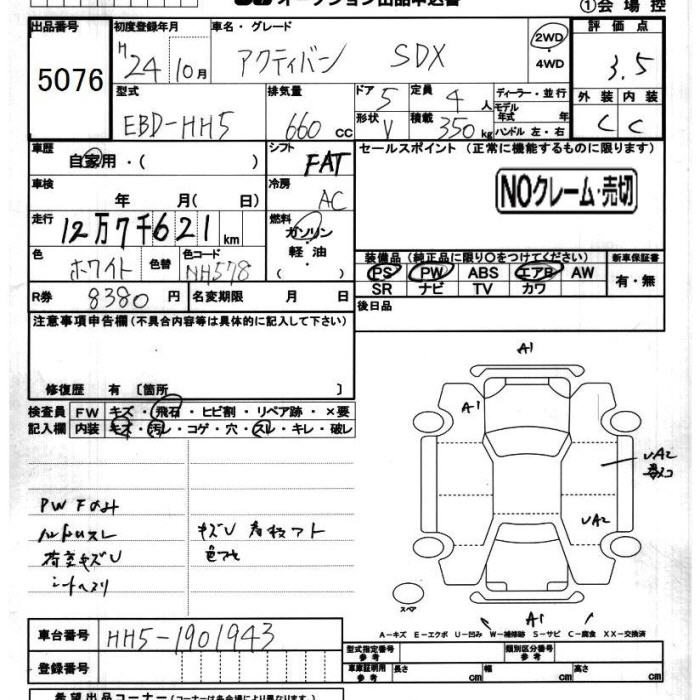 オークション出品申込書
①会場控
出品番号
5076
初度登録年月
H24年10月
車名・グレード
アクティバン SDX
2WD
・4WD
評価点
3.5
型式
EBD-HH5
排気量
660 cc
ドア 5
形状 V
定員 4 人
積載 350 kg
ディーラー・並行
モデル年式 年
ハンドル 左・右
外装 内装
C C
車歴
自家用・( )
シフト
FAT
セールスポイント (正常に機能するものに限ります)
NOクレーム・売切
車検
年 月( 日)
冷房
AC
走行
12万7千621 km
燃料
ガソリン
軽油
( )
色
ホワイト
色替
色コード
NH578
装備品(純正品に限り○をつけてください)
新車保証書
PS PW ABS エアB AW
SR ナビ TV カワ
有・無
R券
8380 円
名変期限 月 日
後日品
注意事項申告欄(不具合内容等は具体的に記入して下さい)
修復歴 有 〔箇所 〕
検査員
記入欄
FW キズ・飛石・ヒビ割・リペア跡・×要
内装 キズ・汚レ・コゲ・穴・スレ・キレ・破レ
A1
A1
UA2
UA2
A1
スペア
PW Fのみ
ハンドルスレ
荷室キズU
シートヘタリ
キズU 看板アト
A-キズ E-エクボ U-凹み W-補修跡 S-サビ C-腐食 XX-交換済
車台番号
HH5-1901943
型式指定番号
参考
類別区分番号
参考
登録番号
車庫証明用
参考
長さ cm 幅 cm 高さ cm
希望出品コーナー(コーナーは各会場により異なります)